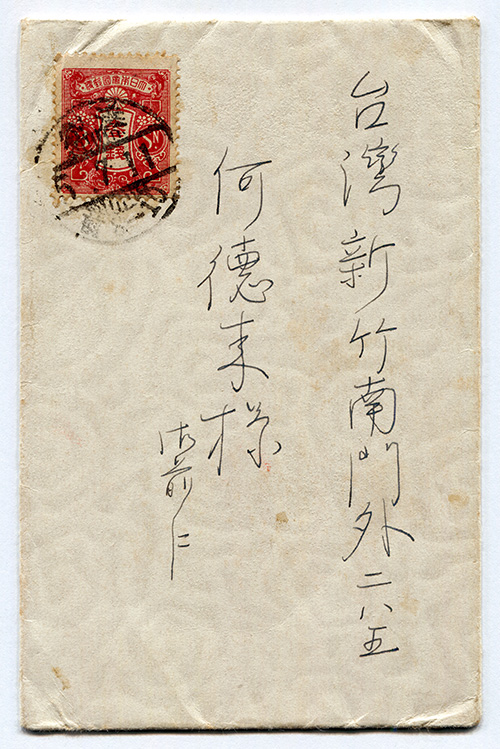 台灣新竹南門外二八五
何德来様
御前に
大日本帝國郵便